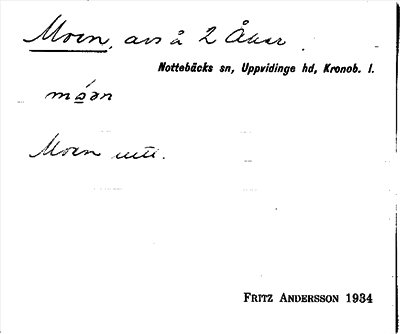 Moen, avs å 2 Åkar.
Nottebäcks sn, Uppvidinge hd, Kronob. l.
móən
Moen utt.
FRITZ ANDERSSON 1934